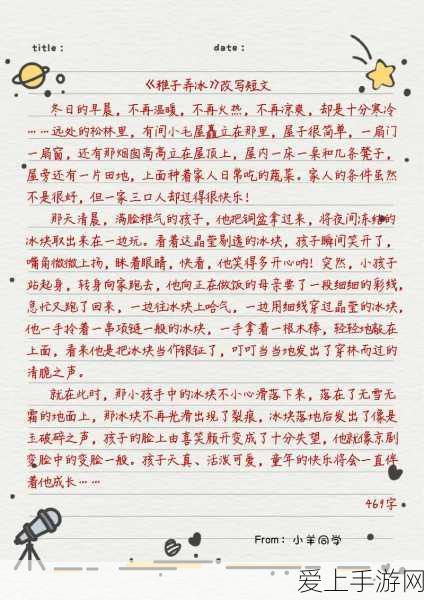 title：
date：
《稚子弄冰》改写短文
冬日的早晨，不再温暖，不再火热，不再凉爽，却是十分寒冷
……远处的松林里，有间小毛屋矗立在那里，屋子很简单，一扇门
一扇窗，还有那烟囱高高立在屋顶上，屋内一床一桌和几条凳子，
屋旁还有一片田地，上面种着家人日常吃的蔬菜。家人的条件虽然
不是很好，但一家三口人却过得很快乐！
那天清晨，满脸稚气的孩子，他把铜盆拿过来，将夜间冻结的
冰块取出来在一边玩。看着这晶莹剔透的冰块，孩子瞬间笑开了，
嘴角微微上扬，眯着眼睛，快看，他笑得多开心呐！突然，小孩子
站起身，转身向家跑去，他向正在做饭的母亲要了一段细细的彩线，
急忙又跑了回来，一边往冰块上哈气，一边用细线穿过晶莹的冰块，
他一手拎着一串项链一般的冰块，一手拿着一根木棒，轻轻地敲在
上面，看来他是把冰块当作银钲了，叮叮当当地发出了穿林而过的
清脆之声。
就在此时，那小孩手中的冰块不小心滑落下来，落在了无雪无
霜的地面上，那冰块不再光滑出现了裂痕，冰块落地后发出了像是
玉破碎之声，孩子的脸上由喜笑颜开变成了十分失望，他就像京剧
变脸中的变脸一般。孩子天真、活泼可爱，童年的快乐将会一直伴
着他成长……
469字
From：小羊同学
爱上手游网